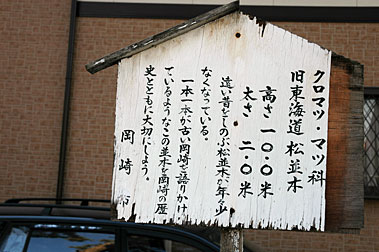 クロマツ・マツ科
旧東海道 松並木
高さ 一〇・〇米
太さ 二・〇米
遠い昔をしのぶ松並木が年々少
なくなっている。
一本一本が古い岡崎を語りかけ
ているようなこの並木を岡崎の歴
史とともに大切にしよう。
岡崎市